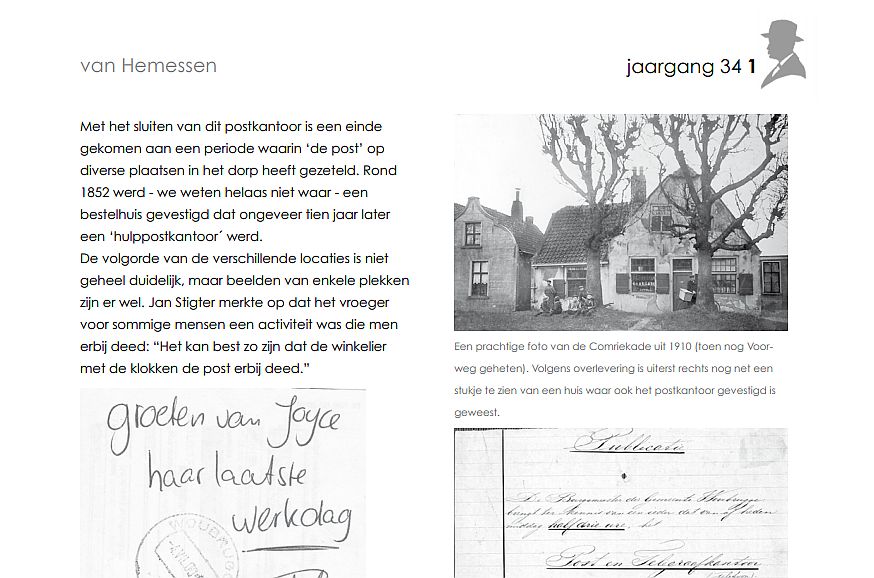 van Hemessen
jaargang 34 1
Met het sluiten van dit postkantoor is een einde
gekomen aan een periode waarin ‘de post’ op
diverse plaatsen in het dorp heeft gezeteld. Rond
1852 werd - we weten helaas niet waar - een
bestelhuis gevestigd dat ongeveer tien jaar later
een ‘hulppostkantoor´ werd.
De volgorde van de verschillende locaties is niet
geheel duidelijk, maar beelden van enkele plekken
zijn er wel. Jan Stigter merkte op dat het vroeger
voor sommige mensen een activiteit was die men
erbij deed: “Het kan best zo zijn dat de winkelier
met de klokken de post erbij deed.”
groeten van Joyce
haar laatste
werkdag
WOUBRUGGE
Een prachtige foto van de Comriekade uit 1910 (toen nog Voor-
weg geheten). Volgens overlevering is uiterst rechts nog net een
stukje te zien van een huis waar ook het postkantoor gevestigd is
geweest.
Publicatie
De Burgemeester der Gemeente Woubrugge
brengt ter kennis van een ieder dat van af heden
middag half drie ure, het
Post en Telegraafkantoor